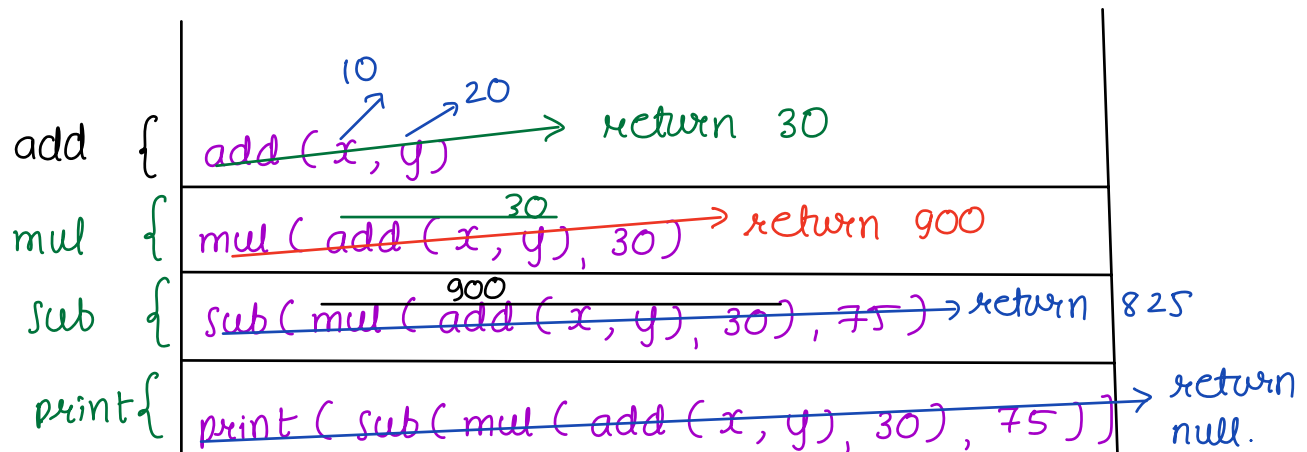 10
20
add { add (x, y) return 30
30
mul { mul ( add (x, y), 30) return 900
900
sub { sub( mul ( add (x, y), 30) , 75 ) return 825
print{ print ( sub( mul ( add (x, y), 30) , 75 )) return
null.